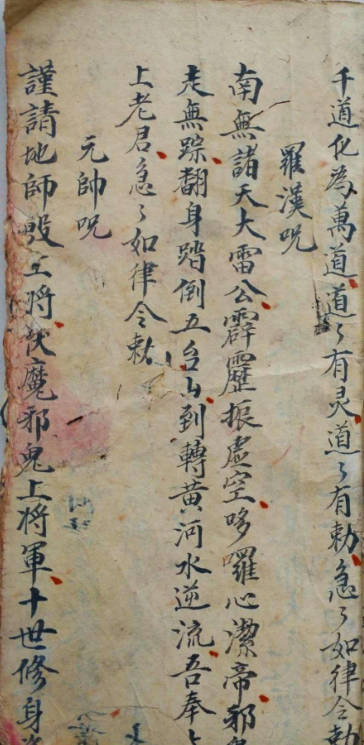 千道化為萬道道々有灵道々有勅急々如律令勅
羅漢咒
南無諸天大雷公霹靂振虚空哆囉心潔帝邪鬼
走無踪翻身踏倒五台山到轉黄河水逆流吾奉
上老君急々如律令勅
元帥咒
謹請地師殷元将伏魔邪鬼上将軍十世修身